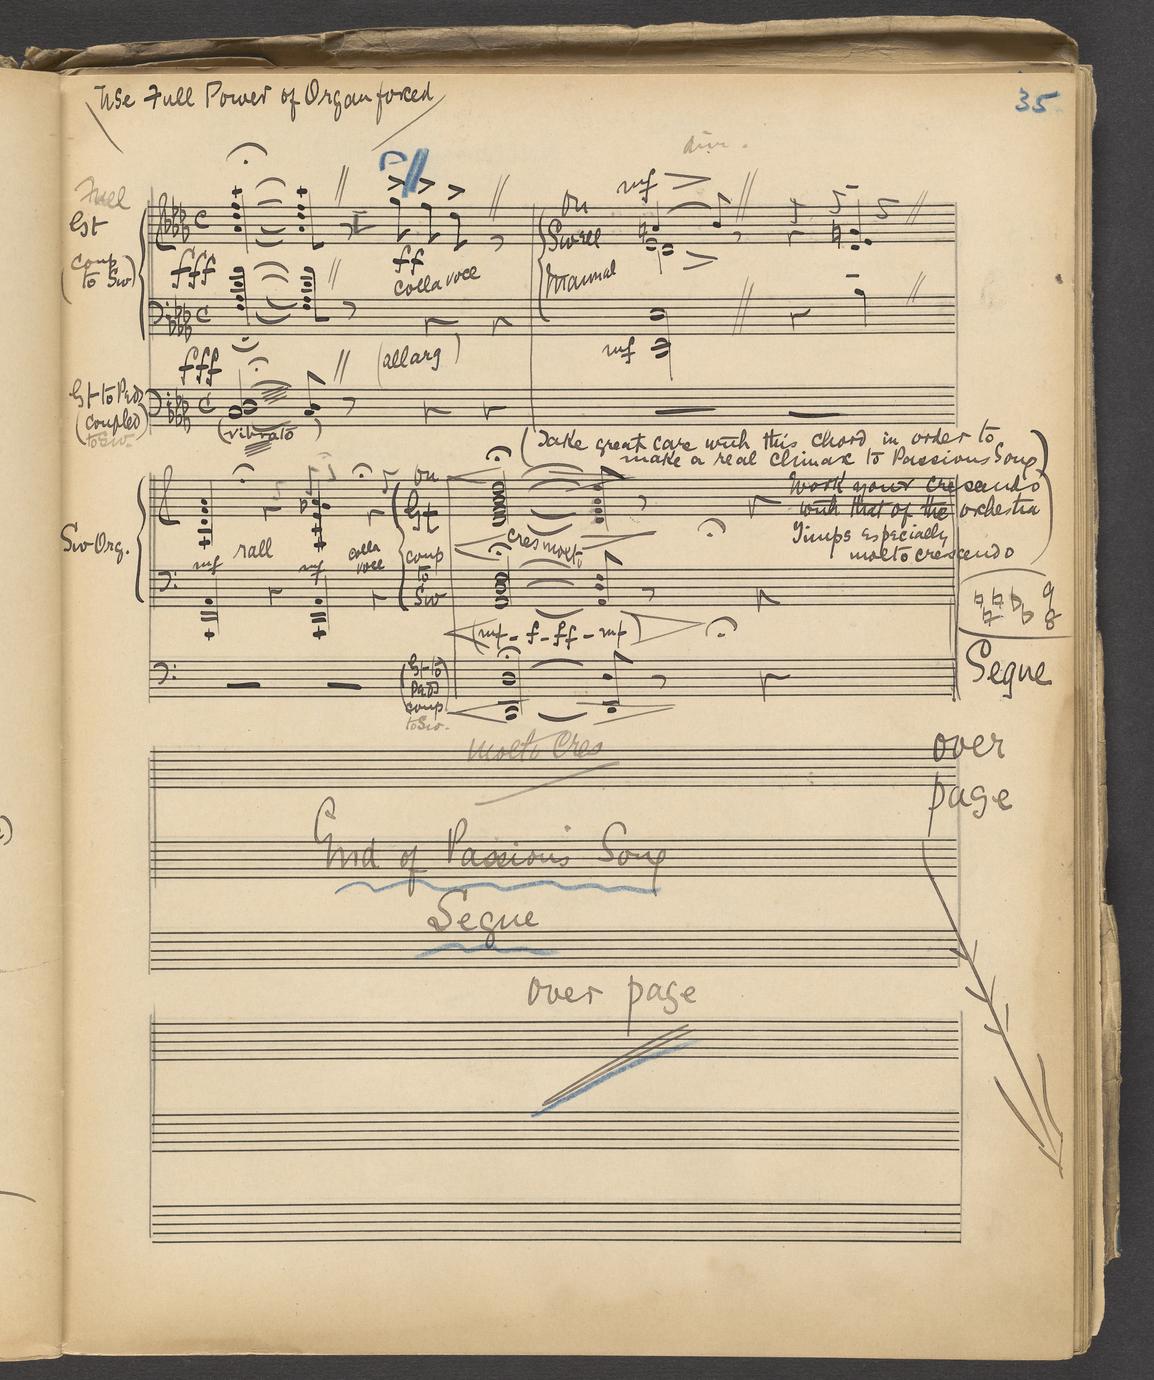 Use Full Power of Organ forced
35
div.
Full
Gt
coup
(to Sw)
fff
ff
colla voce
mf
on
Swell
Manual
mf
fff
(allarg)
Gt to Ped
(coupled)
to Sw.
(vibrato)
(Take great care with this chord in order to
make a real climax to Passions Song)
Work your crescendo
with that of the orchestra
Timps especially
molto crescendo
Sw Org.
mf
rall
mf
colla
voce
on
Gt
coup
to
Sw
cres molto
(mf - f - ff - mf)
Gt to
Ped
coup
to Sw.
Segue
over
page
molto Cres
End of Passions Song
Segue
over page